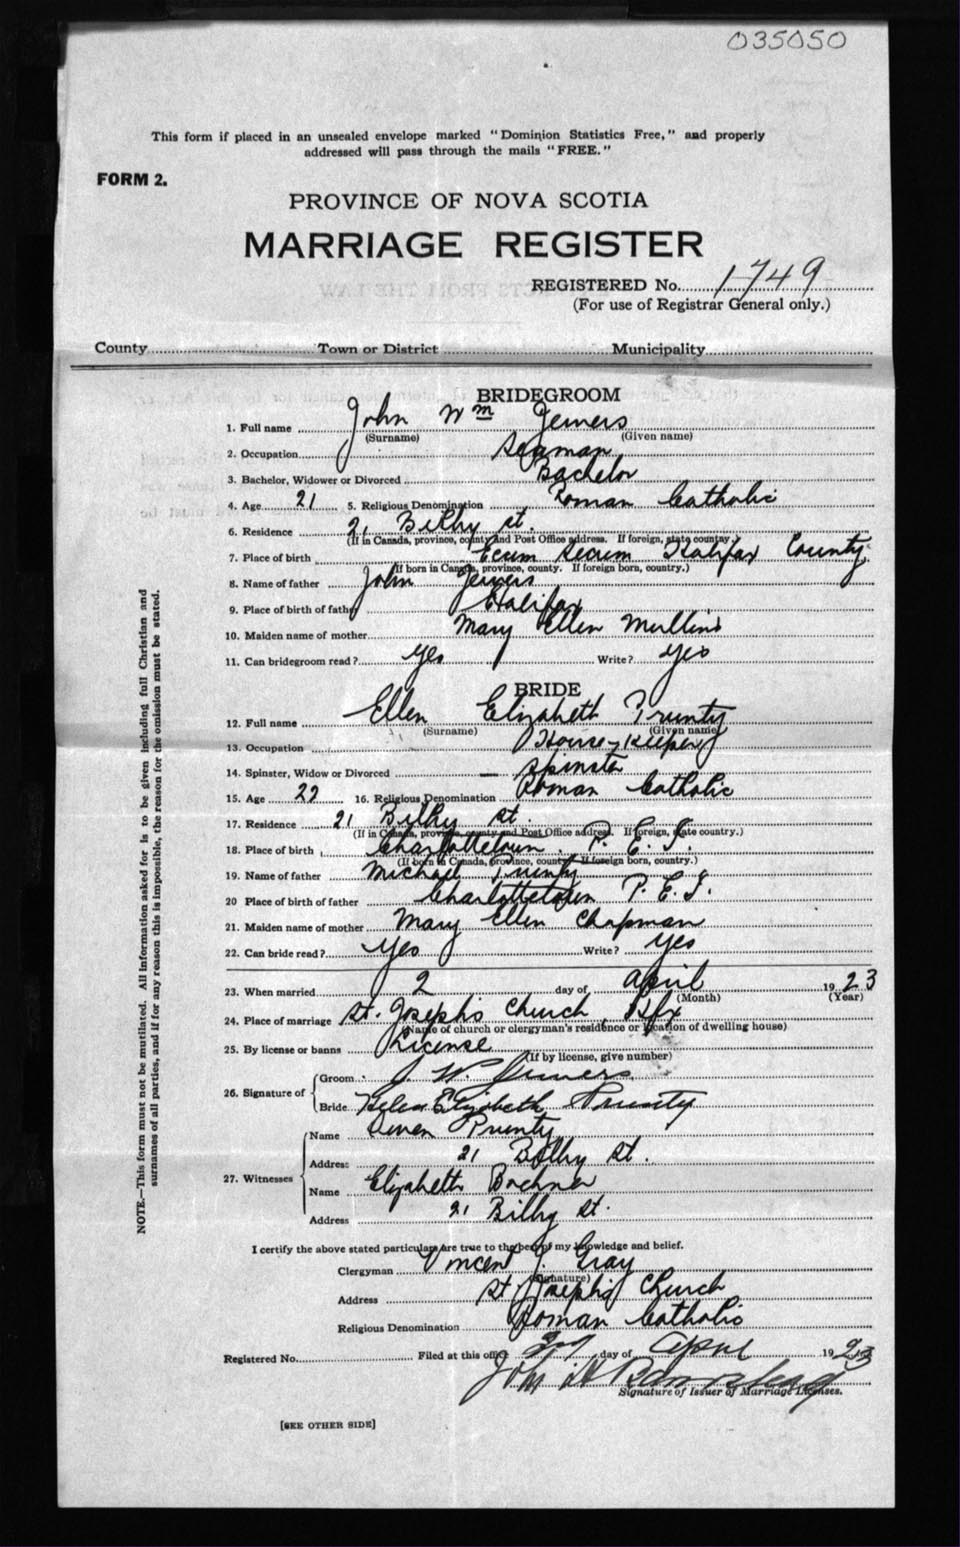 035050
This form if placed in an unsealed envelope marked "Dominion Statistics Free," and properly
addressed will pass through the mails "FREE."
FORM 2.
PROVINCE OF NOVA SCOTIA
MARRIAGE REGISTER
REGISTERED No. 1749
(For use of Registrar General only.)
County Town or District Municipality
BRIDEGROOM
1. Full name John Wm Jewers
(Surname) (Given name)
2. Occupation Seaman
3. Bachelor, Widower or Divorced Bachelor
4. Age 21 5. Religious Denomination Roman Catholic
6. Residence 21 Bilby St.
(If in Canada, province, county and Post Office address. If foreign, state country.)
7. Place of birth Ecum Secum Halifax County
(If born in Canada, province, county. If foreign born, country.)
8. Name of father John Jewers
9. Place of birth of father Halifax
10. Maiden name of mother Mary Ellen Mullins
11. Can bridegroom read? yes Write? yes
BRIDE
12. Full name Ellen Elizabeth Prunty
(Surname) (Given name)
13. Occupation House-keeper
14. Spinster, Widow or Divorced Spinster
15. Age 22 16. Religious Denomination Roman Catholic
17. Residence 21 Bilby St.
(If in Canada, province, county and Post Office address. If foreign, state country.)
18. Place of birth Charlottetown P. E. I.
(If born in Canada, province, county. If foreign born, country.)
19. Name of father Michael Prunty
20 Place of birth of father Charlottetown P. E. I.
21. Maiden name of mother Mary Ellen Chapman
22. Can bride read? yes Write? yes
23. When married 2 day of April 1923
(Month) (Year)
24. Place of marriage St. Joseph's Church, Hfx
(Name of church or clergyman's residence or location of dwelling house)
25. By license or banns License
(If by license, give number)
26. Signature of Groom J. W. Jewers
Bride Helen Elizabeth Prunty
27. Witnesses Name Owen Prunty
Address 21 Bilby St.
Name Elizabeth
Address 21 Bilby St.
I certify the above stated particulars are true to the best of my knowledge and belief.
Clergyman Vincent J. Gray
(Signature)
Address St. Joseph's Church
Religious Denomination Roman Catholic
Registered No. Filed at this office day of April 1923
Signature of Issuer of Marriage Licenses.
[SEE OTHER SIDE]
NOTE.—This form must not be mutilated. All information asked for is to be given including full Christian and
surnames of all parties, and if for any reason this is impossible, the reason for the omission must be stated.